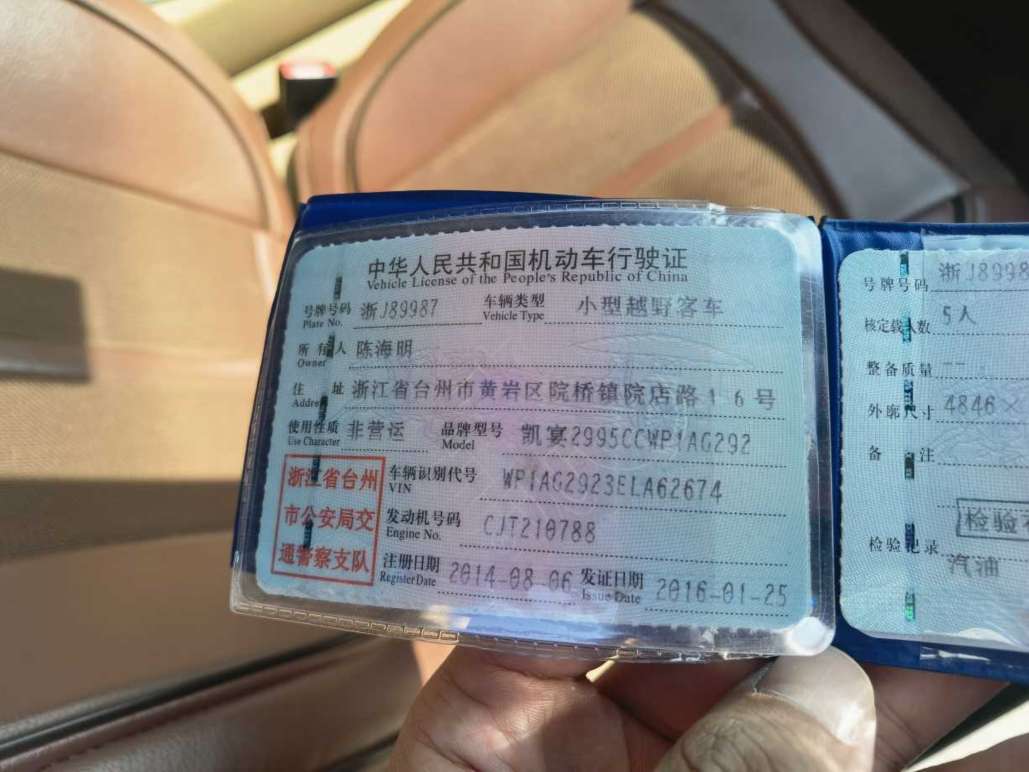 中华人民共和国机动车行驶证
Vehicle License of the People's Republic of China
号牌号码 浙J89987 车辆类型 小型越野客车
Plate No. Vehicle Type
所有人 陈海明
Owner
住址 浙江省台州市黄岩区院桥镇院店路16号
Address
使用性质 非营运 品牌型号 凯宴2995CCWP1AG292
Use Character Model
浙江省台州
市公安局交
通警察支队
车辆识别代号 WP1AG2923ELA62674
VIN
发动机号码 CJT210788
Engine No.
注册日期 2014-08-06 发证日期 2016-01-25
Register Date Issue Date
号牌号码 浙J8998
核定载人数 5人
整备质量 --
外廓尺寸 4846×
备注
检验
检验记录
汽油